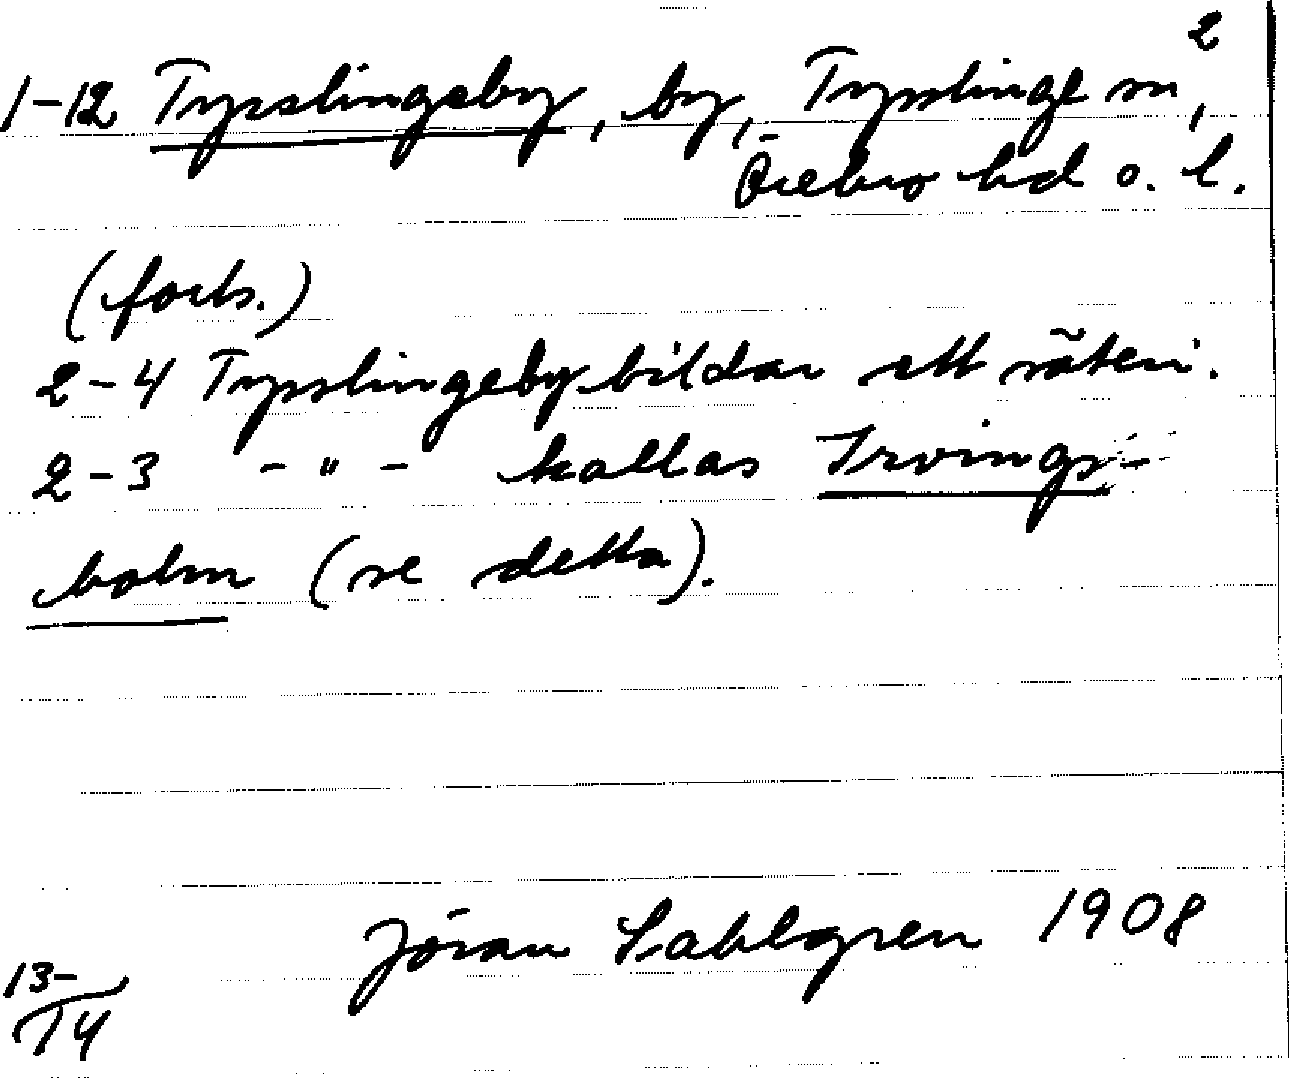 2
1-12 Tysslingeby, by, Tysslinge sn,
Örebro hd o. l.
(forts.)
2-4 Tysslingeby bildar ett säteri.
2-3 - " - kallas Irvings-
holm (se detta).
Jöran Sahlgren 1908
13-
14